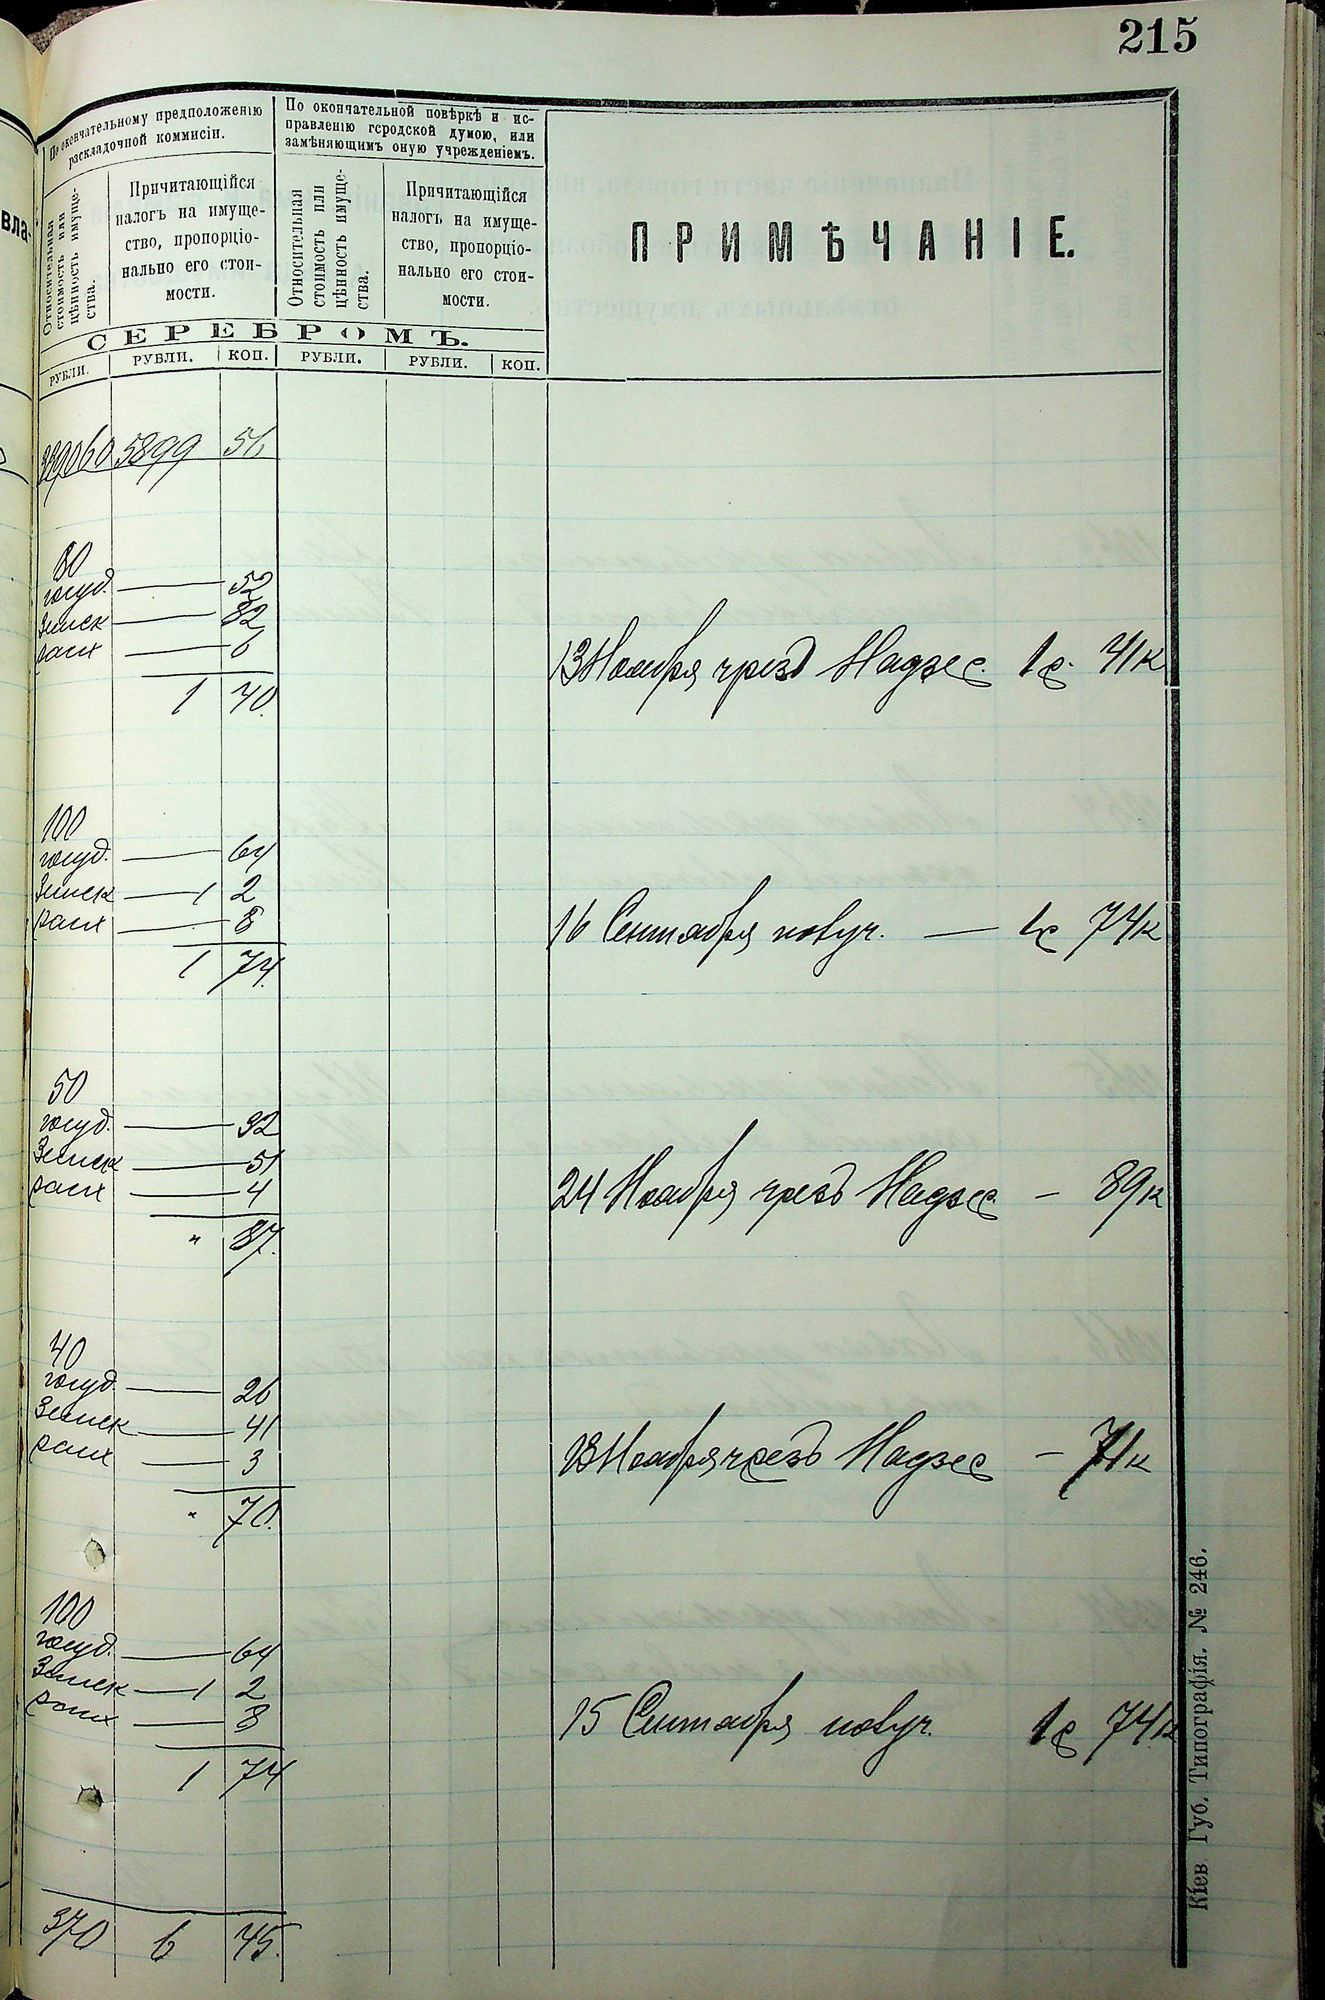 215
По окончательному предположенію
раскладочной коммисіи.
По окончательной повѣркѣ и ис-
правленію городской думою, или
замѣняющимъ оную учрежденіемъ.
Относительная
стоимость или
цѣнность имуще-
ства.
Причитающійся
налогъ на имуще-
ство, пропорціо-
нально его стои-
мости.
Относительная
стоимость или
цѣнность имуще-
ства.
Причитающійся
налогъ на имуще-
ство, пропорціо-
нально его стои-
мости.
ПРИМѢЧАНІЕ.
СЕРЕБРОМЪ.
РУБЛИ. РУБЛИ. КОП. РУБЛИ. РУБЛИ. КОП.
5899 56
80
госуд. — 52
Земск — 82
6
1 40
13 Ноября чрезъ Надзес. 1 р. 41 к
100
госуд. — 64
Земск — 1 2
8
1 74.
16 Сентября — 1 р 74 к
50
госуд. — 32
Земск — 51
4
" 87.
24 Ноября чрезъ Надзес — 89 к
40
госуд. — 26
Земск — 41
3
" 70.
Ноября чрезъ Надзес — 71 к
100
госуд. — 64
Земск — 1 2
8
1 74
15 Сентября 1 р 74 к
370 6 45.
Кіев. Губ. Типографія. № 246.